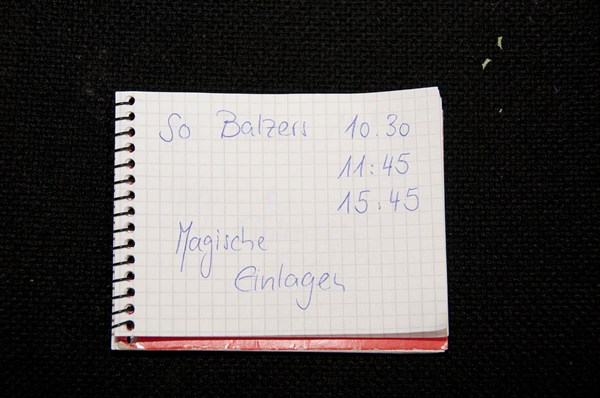 So Balzers 10.30
11:45
15.45
Magische
Einlagen